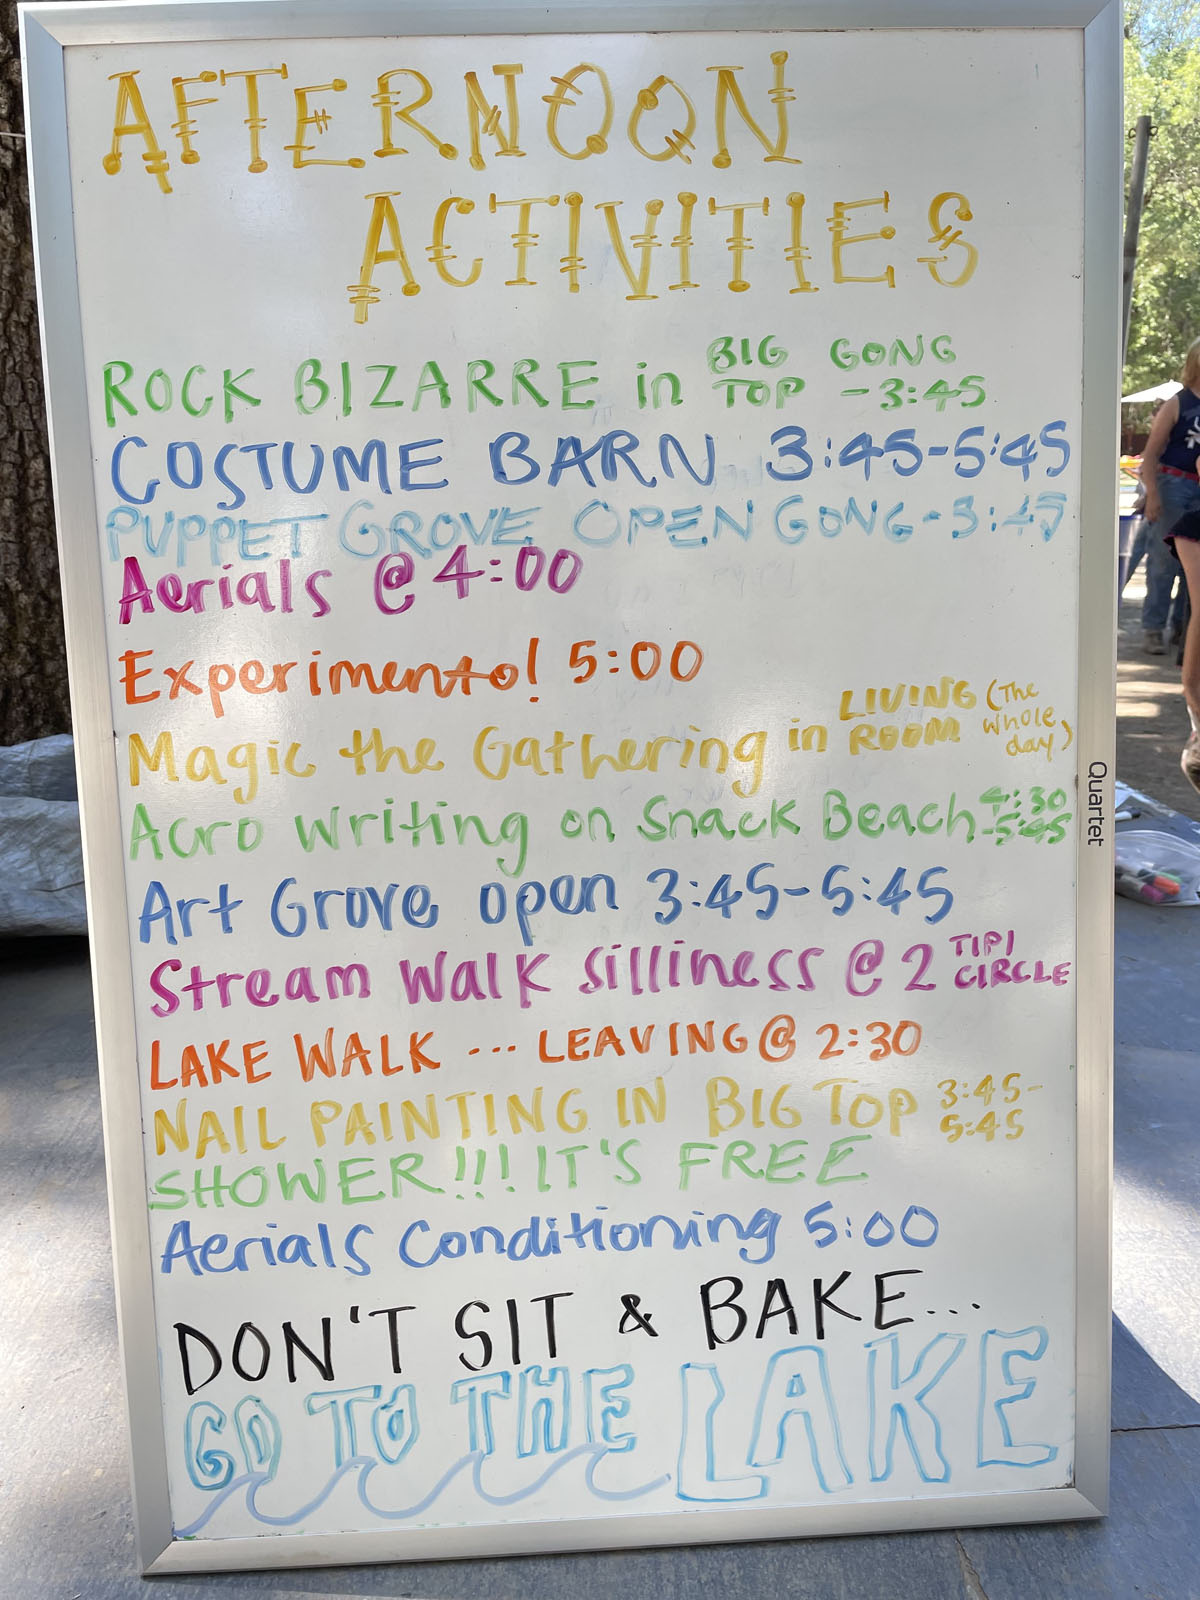 AFTERNOON
ACTIVITIES
ROCK BIZARRE in BIG TOP GONG -3:45
COSTUME BARN 3:45-5:45
PUPPET GROVE OPEN GONG-5:45
Aerials @ 4:00
Experimento! 5:00
Magic the Gathering in LIVING ROOM (The whole day)
Acro Writing on Snack Beach 4:30 -5:45
Art Grove open 3:45-5:45
Stream Walk Silliness @ 2 TIPI CIRCLE
LAKE WALK ... LEAVING @ 2:30
NAIL PAINTING IN BIG TOP 3:45- 5:45
SHOWER!!! IT'S FREE
Aerials Conditioning 5:00
DON'T SIT & BAKE...
GO TO THE LAKE
Quartet